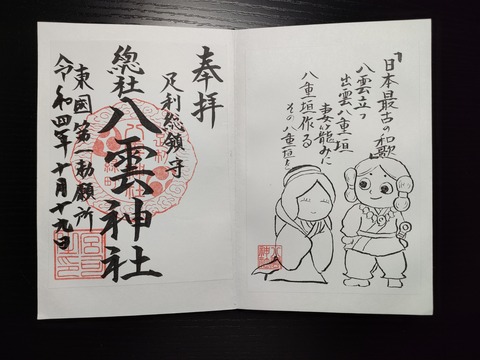 「日本最古の和歌
八雲立つ
出雲八重垣
妻籠みに
八重垣作る
その八重垣を
奉拝
足利総鎮守
總社八雲神社
東國第一勅願所
令和四年十月十九日